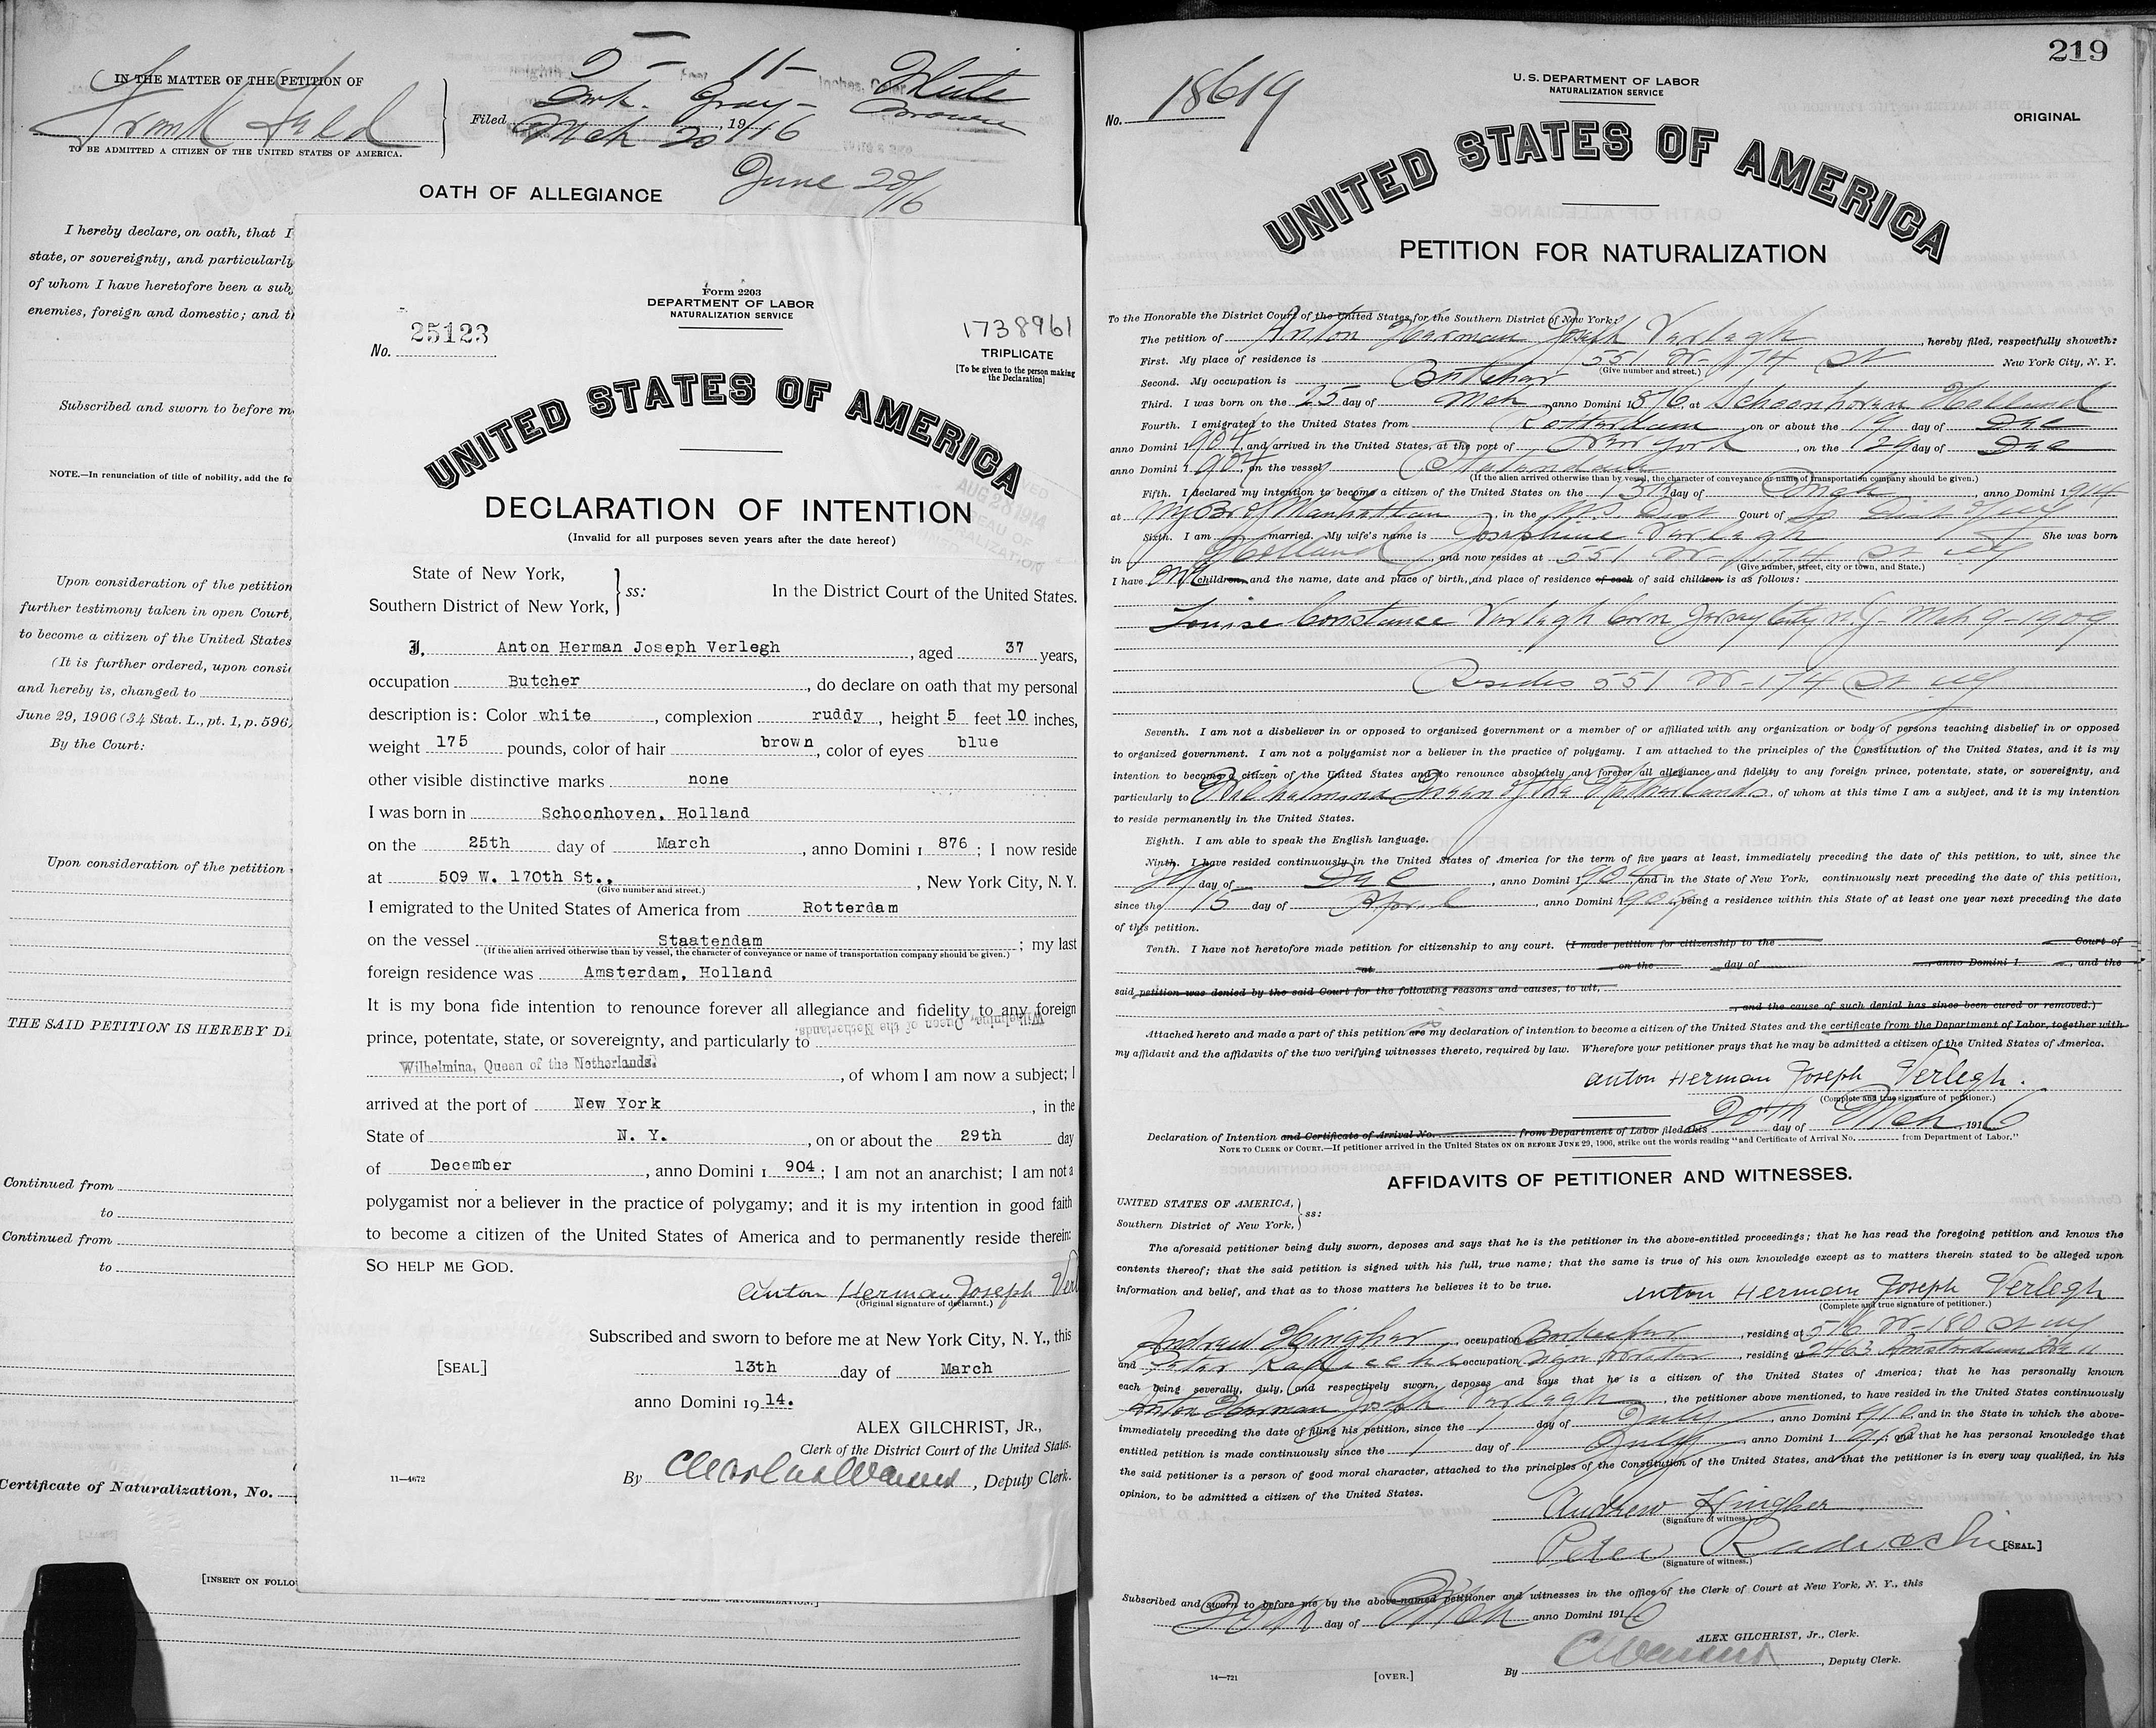 IN THE MATTER OF THE PETITION OF
Frank
TO BE ADMITTED A CITIZEN OF THE UNITED STATES OF AMERICA.
5 11 White
Dark. Gray Brown
Filed Mch 20, 1916
June 20/16
OATH OF ALLEGIANCE
I hereby declare, on oath, that I
state, or sovereignty, and particularly
of whom I have heretofore been a sub
enemies, foreign and domestic; and t
Subscribed and sworn to before m
NOTE.—In renunciation of title of nobility, add the fo
Upon consideration of the petition
further testimony taken in open Court,
to become a citizen of the United States
(It is further ordered, upon consi
and hereby is, changed to
June 29, 1906 (34 Stat. L., pt. 1, p. 596
By the Court:
Upon consideration of the petition
THE SAID PETITION IS HEREBY D
Continued from
to
Continued from
to
Certificate of Naturalization, No.
[INSERT ON FOLLO
Form 2203
DEPARTMENT OF LABOR
NATURALIZATION SERVICE
No. 25123
1738961
TRIPLICATE
[To be given to the person making
the Declaration]
UNITED STATES OF AMERICA
AUG 28 1914
DECLARATION OF INTENTION
(Invalid for all purposes seven years after the date hereof)
State of New York,
Southern District of New York, } ss: In the District Court of the United States.
I, Anton Herman Joseph Verlegh, aged 37 years,
occupation Butcher, do declare on oath that my personal
description is: Color white, complexion ruddy, height 5 feet 10 inches,
weight 175 pounds, color of hair brown, color of eyes blue
other visible distinctive marks none
I was born in Schoonhoven, Holland
on the 25th day of March, anno Domini 1876; I now reside
at 509 W. 170th St., , New York City, N. Y.
(Give number and street.)
I emigrated to the United States of America from Rotterdam
on the vessel Staatendam; my last
(If the alien arrived otherwise than by vessel, the character of conveyance or name of transportation company should be given.)
foreign residence was Amsterdam, Holland
It is my bona fide intention to renounce forever all allegiance and fidelity to any foreign
Wilhelmina, Queen of the Netherlands.
prince, potentate, state, or sovereignty, and particularly to
Wilhelmina, Queen of the Netherlands, of whom I am now a subject; I
arrived at the port of New York, in the
State of N. Y., on or about the 29th day
of December, anno Domini 1904; I am not an anarchist; I am not a
polygamist nor a believer in the practice of polygamy; and it is my intention in good faith
to become a citizen of the United States of America and to permanently reside therein:
SO HELP ME GOD.
Anton Herman Joseph Verl
(Original signature of declarant.)
Subscribed and sworn to before me at New York City, N. Y., this
[SEAL] 13th day of March
anno Domini 1914.
ALEX GILCHRIST, JR.,
Clerk of the District Court of the United States.
By , Deputy Clerk.
11—4672
219
U. S. DEPARTMENT OF LABOR
NATURALIZATION SERVICE
No. 18619
ORIGINAL
UNITED STATES OF AMERICA
PETITION FOR NATURALIZATION
To the Honorable the District Court of the United States for the Southern District of New York:
The petition of Anton Herman Joseph Verlegh, hereby filed, respectfully showeth:
First. My place of residence is 551 W-174 St New York City, N. Y.
(Give number and street.)
Second. My occupation is Butcher
Third. I was born on the 25 day of Mch anno Domini 1876, at Schoonhoven Holland
Fourth. I emigrated to the United States from Rotterdam on or about the 19 day of Dec
anno Domini 1904, and arrived in the United States, at the port of New York, on the 29 day of Dec
anno Domini 1904, on the vessel Statendam
(If the alien arrived otherwise than by vessel, the character of conveyance or name of transportation company should be given.)
Fifth. I declared my intention to become a citizen of the United States on the 13th day of , anno Domini 1914
at NY Bor of Manhattan in the U.S. Dist Court of So Dist of NY
Sixth. I am married. My wife's name is Josephine Verlegh She was born
in Holland and now resides at 551 W-174 St NY
(Give number, street, city or town, and State.)
I have one children, and the name, date and place of birth, and place of residence of each of said children is as follows:
Louise Constance Verlegh born Jersey City N.J. Mch 9-1909
Resides 551 W-174 St NY
Seventh. I am not a disbeliever in or opposed to organized government or a member of or affiliated with any organization or body of persons teaching disbelief in or opposed
to organized government. I am not a polygamist nor a believer in the practice of polygamy. I am attached to the principles of the Constitution of the United States, and it is my
intention to become a citizen of the United States and to renounce absolutely and forever all allegiance and fidelity to any foreign prince, potentate, state, or sovereignty, and
particularly to Wilhelmina Queen of the Netherlands, of whom at this time I am a subject, and it is my intention
to reside permanently in the United States.
Eighth. I am able to speak the English language.
Ninth. I have resided continuously in the United States of America for the term of five years at least, immediately preceding the date of this petition, to wit, since the
29 day of Dec, anno Domini 1904, and in the State of New York, continuously next preceding the date of this petition,
since the 15 day of April, anno Domini 1909, being a residence within this State of at least one year next preceding the date
of this petition.
Tenth. I have not heretofore made petition for citizenship to any court. (I made petition for citizenship to the Court of
at on the day of anno Domini 1 , and the
said petition was denied by the said Court for the following reasons and causes, to wit,
and the cause of such denial has since been cured or removed.)
Attached hereto and made a part of this petition are is my declaration of intention to become a citizen of the United States and the certificate from the Department of Labor, together with
my affidavit and the affidavits of the two verifying witnesses thereto, required by law. Wherefore your petitioner prays that he may be admitted a citizen of the United States of America.
Anton Herman Joseph Verlegh.
(Complete and true signature of petitioner.)
Declaration of Intention and Certificate of Arrival No. from Department of Labor filed this 20th day of Mch, 1916
NOTE TO CLERK OF COURT.—If petitioner arrived in the United States ON OR BEFORE JUNE 29, 1906, strike out the words reading "and Certificate of Arrival No. from Department of Labor."
AFFIDAVITS OF PETITIONER AND WITNESSES.
UNITED STATES OF AMERICA,
Southern District of New York, } ss:
The aforesaid petitioner being duly sworn, deposes and says that he is the petitioner in the above-entitled proceedings; that he has read the foregoing petition and knows the
contents thereof; that the said petition is signed with his full, true name; that the same is true of his own knowledge except as to matters therein stated to be alleged upon
information and belief, and that as to those matters he believes it to be true.
Anton Herman Joseph Verlegh
(Complete and true signature of petitioner.)
Andrew Hingher, occupation Barkeeper, residing at 516 W-180 St NY
and Peter occupation Sign , residing at 2463 Amsterdam Ave
each being severally, duly, and respectively sworn, deposes and says that he is a citizen of the United States of America; that he has personally known
Anton Herman Joseph Verlegh, the petitioner above mentioned, to have resided in the United States continuously
immediately preceding the date of filing his petition, since the 1 day of July, anno Domini 1910, and in the State in which the above-
entitled petition is made continuously since the 1 day of July, anno Domini 1910, and that he has personal knowledge that
the said petitioner is a person of good moral character, attached to the principles of the Constitution of the United States, and that the petitioner is in every way qualified, in his
opinion, to be admitted a citizen of the United States.
Andrew Hingher
(Signature of witness.)
Peter [SEAL]
(Signature of witness.)
Subscribed and sworn to before me by the above-named petitioner and witnesses in the office of the Clerk of Court at New York, N. Y., this
20th day of Mch anno Domini 1916
ALEX GILCHRIST, Jr., Clerk.
By , Deputy Clerk.
14—721
[OVER.]